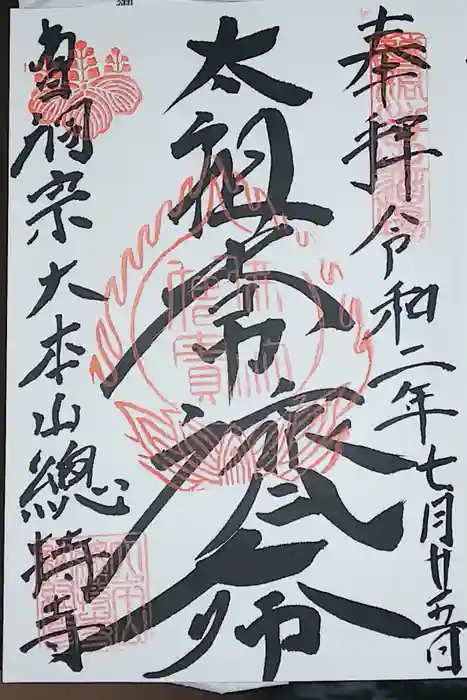 奉拝 令和二年七月廿五日
太祖常濟大師
曹洞宗大本山總持寺